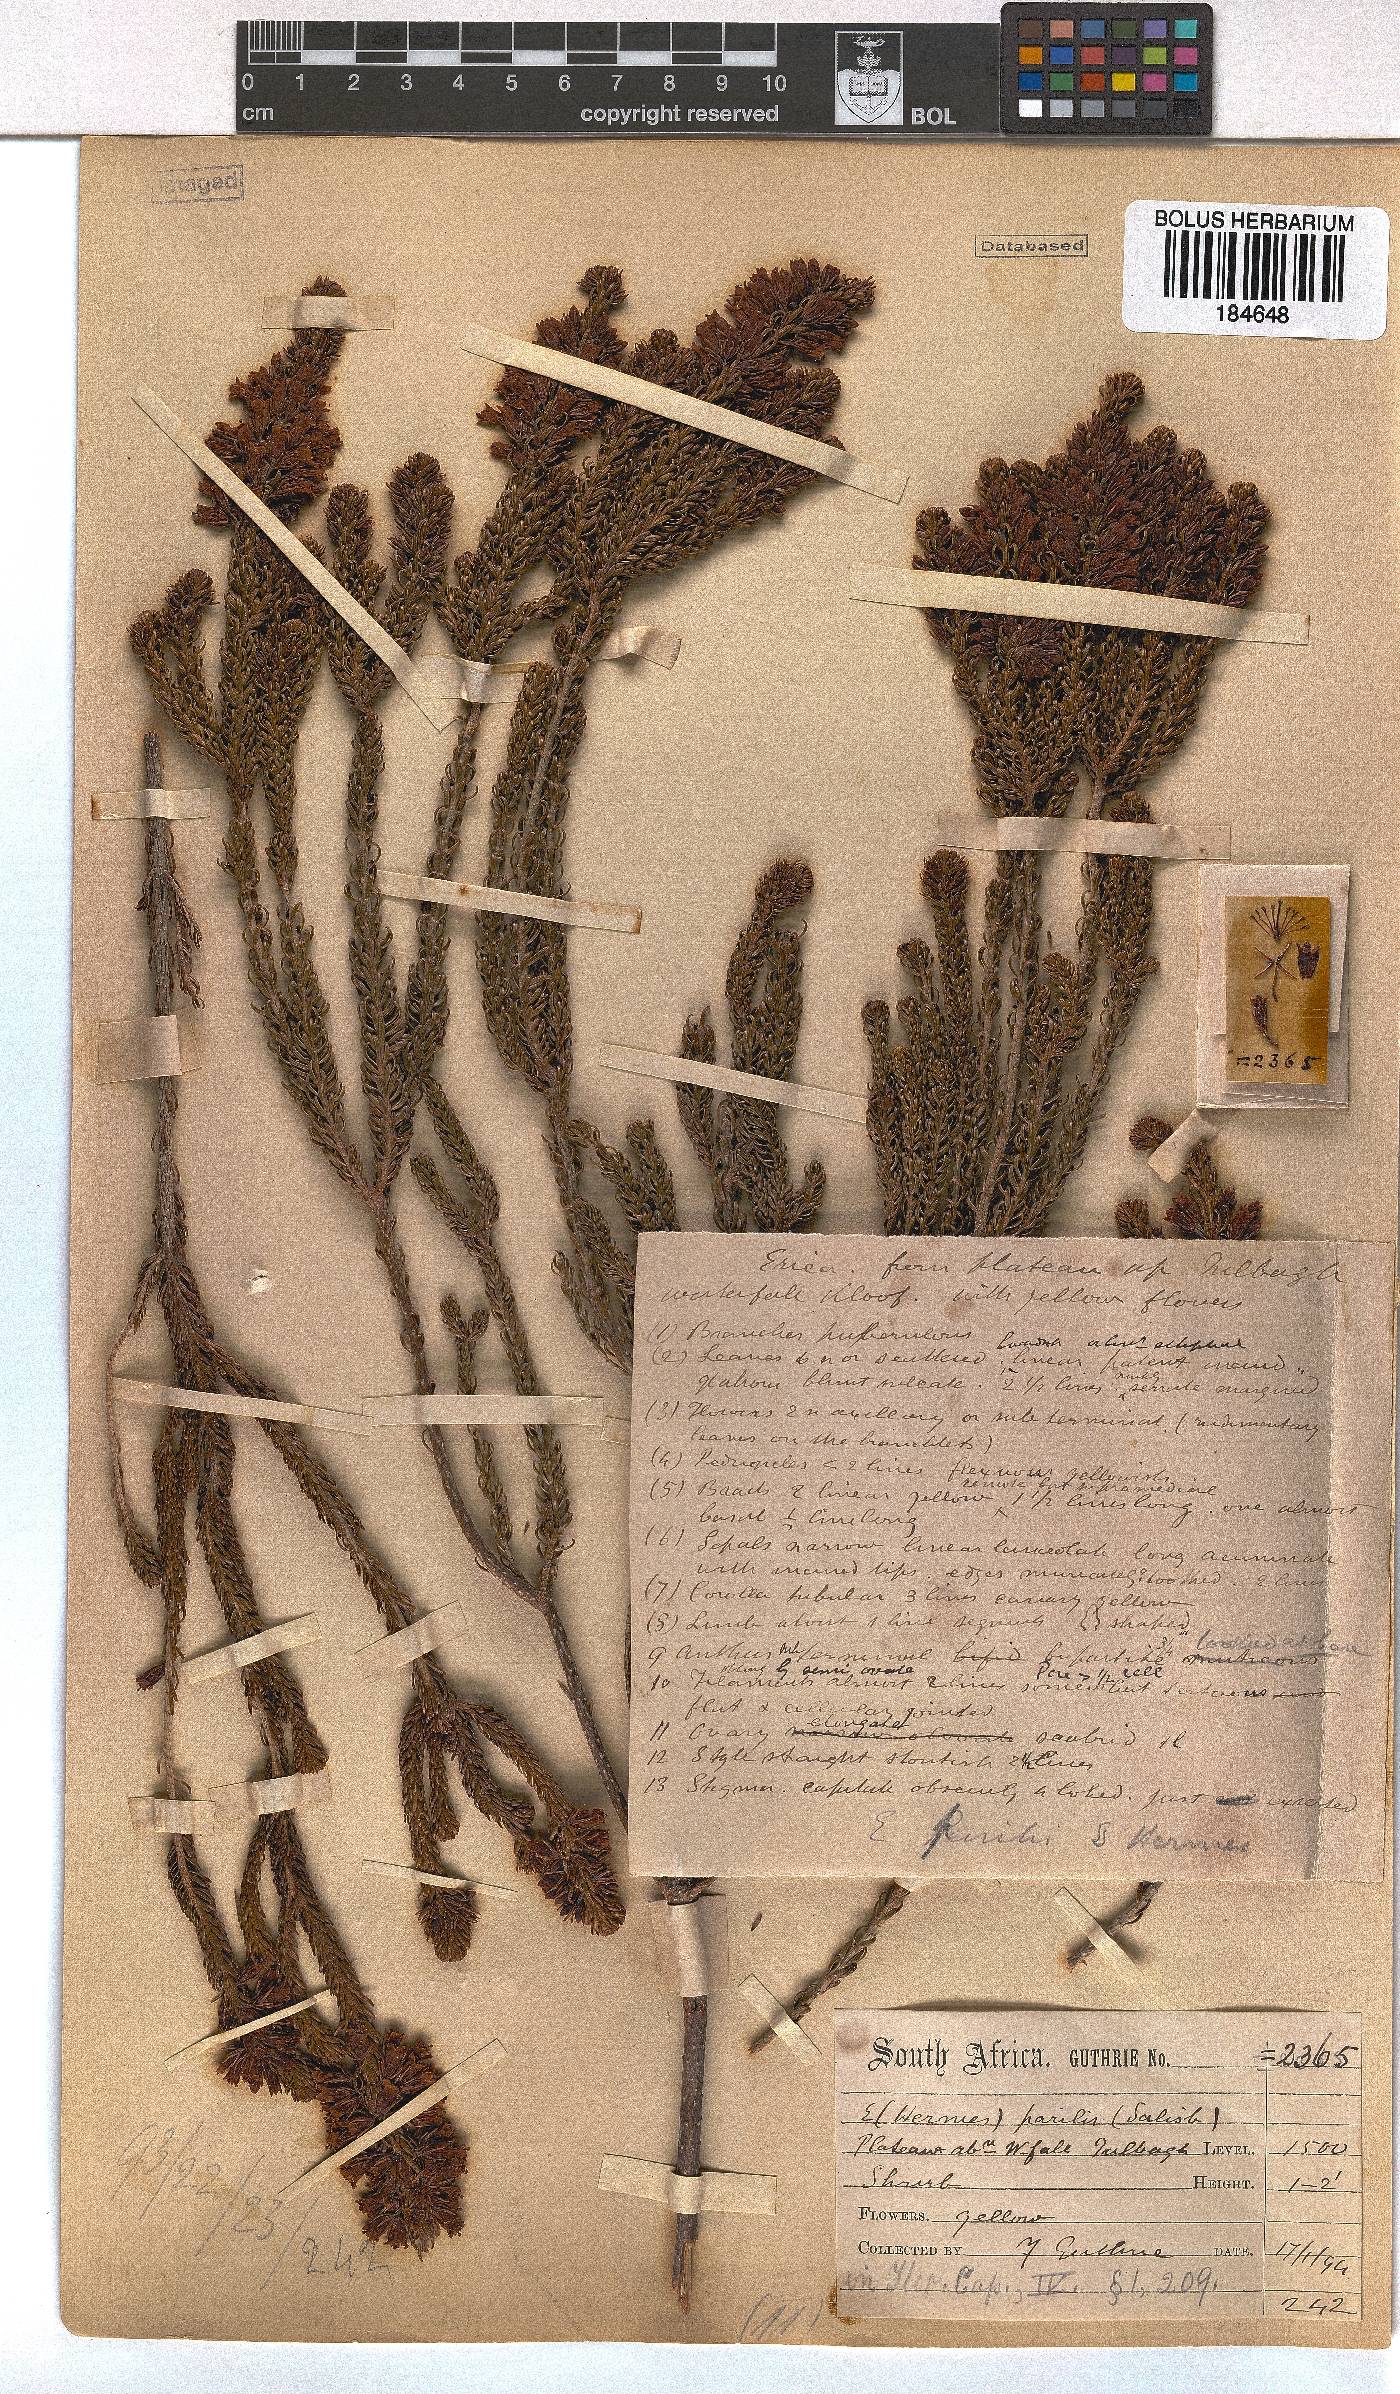 0 1 2 3 4 5 6 7 8 9 10
cm copyright reserved BOL
Imaged
Databased
BOLUS HERBARIUM
184648
=2365
Erica. from plateau up Tulbagh
waterfall kloof. with yellow flowers
(1) Branches puberulous
(2) Leaves 6 n or scattered. linear patent incurved
glabrous blunt sulcate. 2 1/2 lines. serrate margined
(3) Flowers 2 n axillary or sub terminal. (rudimentary
leaves on the branchlets)
(4) Peduncles < 2 lines flexuous yellowish.
(5) Bracts 2 linear yellow remote 1 1/2 lines long. one almost
basal 1/2 line long
(6) Sepals narrow linear lanceolate long acuminate
with incurved tips. edges minutely toothed. 2 lines
(7) Corolla tubular 3 lines canary yellow
(8) Limb about 1 line segments shaped
9 Anthers terminal bifid bipartite muticous
10 Filaments almost 2 lines somewhat
flat & cellular jointed
11 Ovary elongated scabrid
12 Style straight stoutish 2 1/2 lines
13 Stigma. capitate obscurely 4 lobed. just exserted
E Parilis § Hermes
South Africa. GUTHRIE No. =2365
E (Hermes) parilis (Salisb)
Plateau abve Wfall Tulbagh LEVEL. 1500
Shrub HEIGHT. 1-2'
FLOWERS. yellow
COLLECTED BY F Guthrie DATE. 17/1/94
in Flor. Cap., IV. §1, 209.
242
93/92/23/242